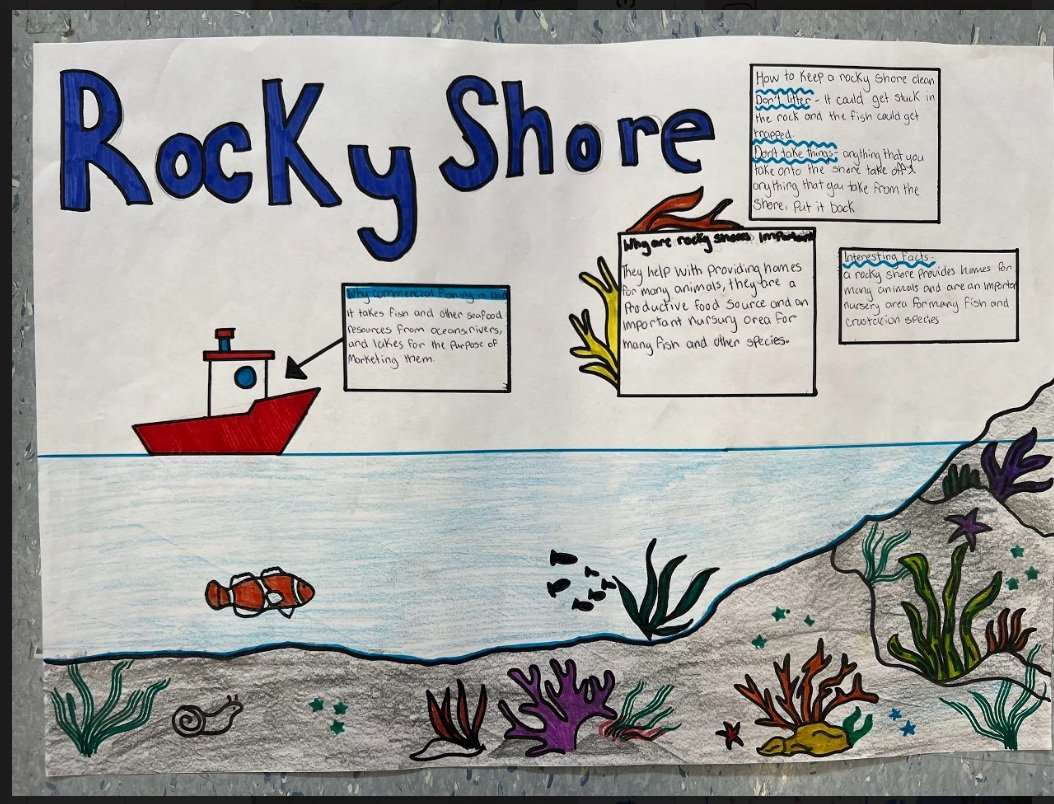 Rocky Shore
How to keep a rocky shore clean
Don't litter - It could get stuck in
the rock and the fish could get
trapped.
Don't take things- anything that you
take onto the shore take off &
anything that you take from the
shore, put it back
Why are rocky shores important
They help with providing homes
for many animals, they are a
Productive food source and an
important nursury area for
many fish and other species.
Interesting facts-
a rocky shore provides homes for
many animals and are an important
nursery area for many fish and
crustacion species
Why commercial fishing is bad
it takes fish and other seafood
resources from oceans, rivers,
and lakes for the purpose of
Marketing them.